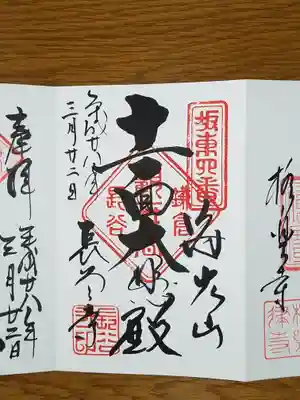 杉本寺
坂東四番
海光山
鎌倉
十一面大悲殿
長谷
長谷寺
平成廿八年
三月廿二日
奉拝
平成廿八年
三月廿二日